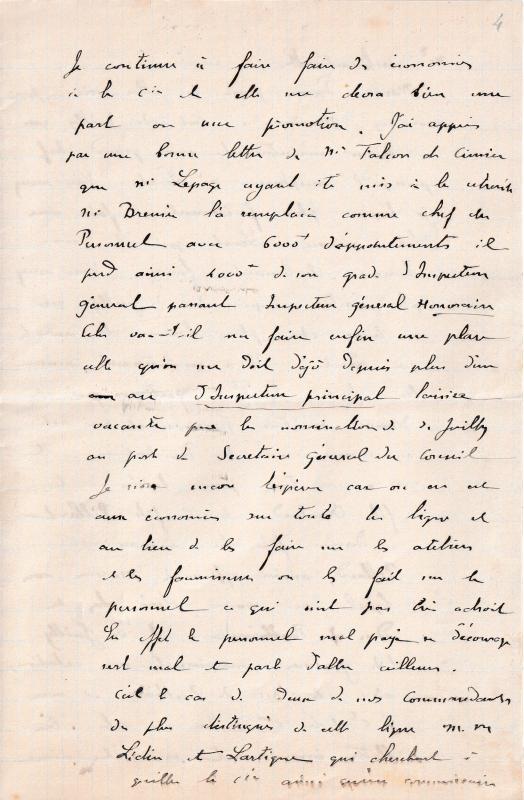 4
Je continue à faire faire des économies
à la Cie et elle me devra bien une
part ou une promotion. J'ai appris
par une bonne lettre de Mr Falcon de Cimier
que Mr Lepage ayant été mis à la retraite
Mr Brenier l'a remplacé comme chef du
Personnel avec 6000f d'appointements il
perd ainsi 4000f de son grade d'Inspecteur
général passant Inspecteur général Honoraire
Cela va-t-il me faire enfin une place
celle qu'on me doit déjà depuis plus d'un
an d'Inspecteur principal laissée
vacante par la nomination de Mr Juilly
au poste de Secrétaire Général du Conseil
Je n'ose encore l'espérer car on en est
aux économies sur toute la ligne et
au lieu de les faire sur les ateliers
et les fournisseurs on les fait sur le
personnel ce qui n'est pas très adroit
En effet le personnel mal payé se décourage
sert mal et parle d'aller ailleurs.
C'est le cas de deux de nos Commandants
des plus distingués de cette ligne M.M
Lédin et Lartigue qui cherchent à
quitter la Cie ainsi qu'un commissaire